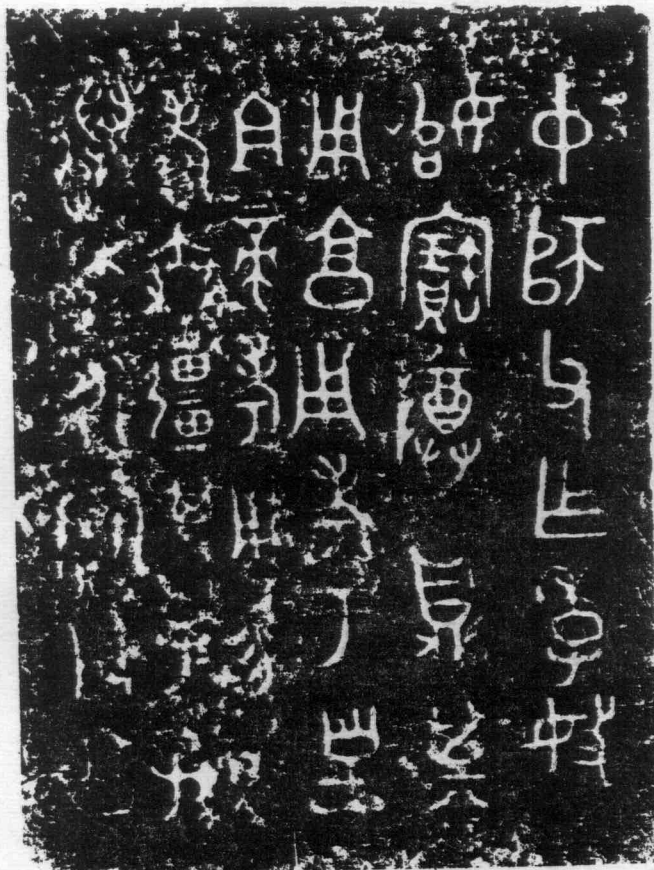 中師父乍季
始寶尊鼎其
用亯用考于皇
且帝考用易眉
壽無疆其子孫
萬年永寶用亯